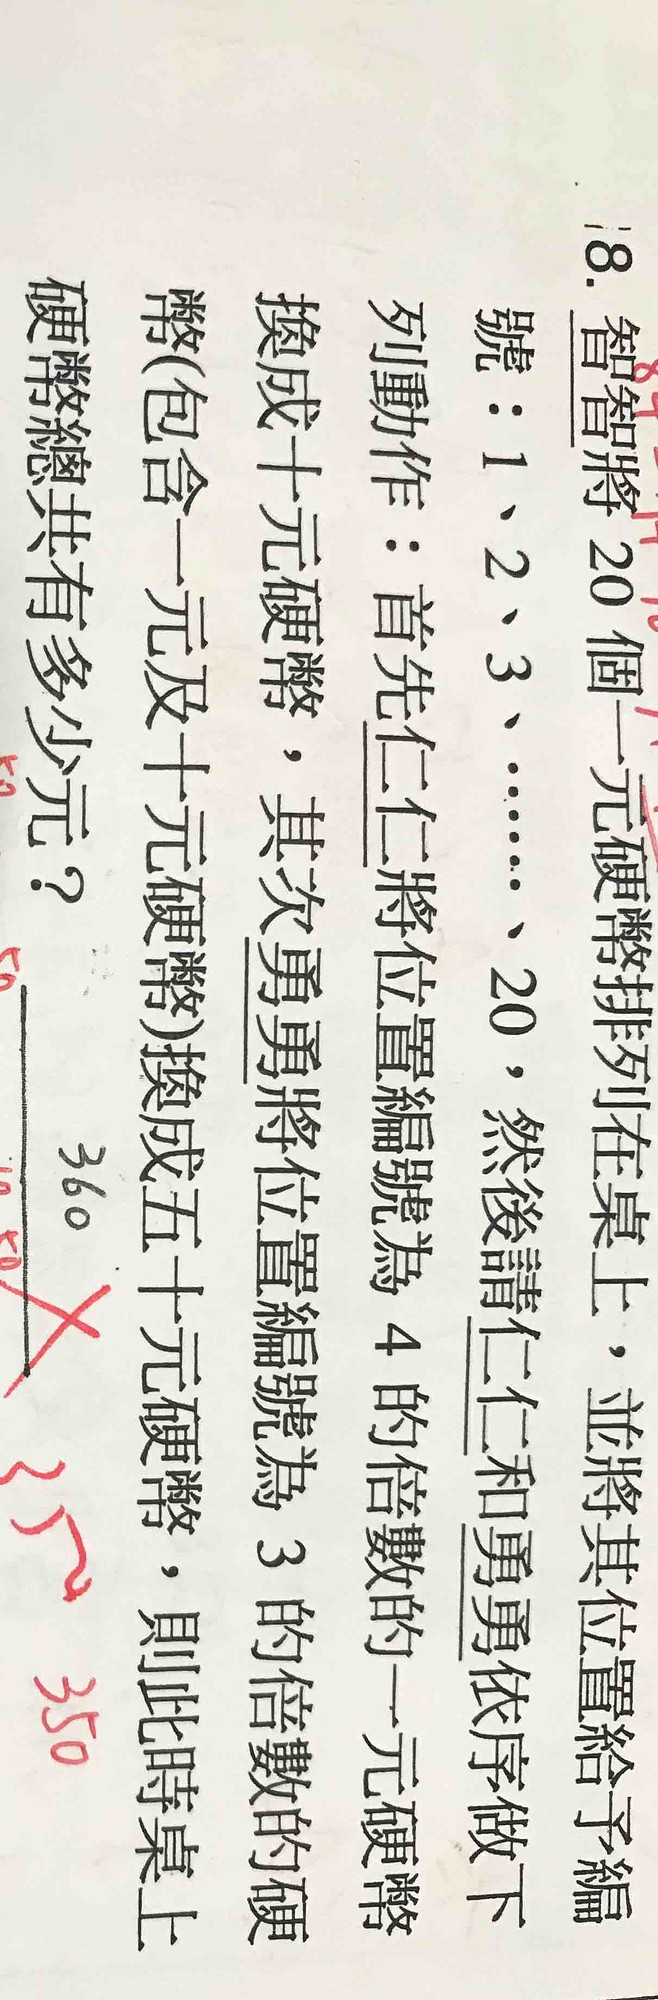 18. 智智將 20 個一元硬幣排列在桌上，並將其位置給予編
號：1、2、3、……、20，然後請仁仁和勇勇依序做下
列動作：首先仁仁將位置編號為 4 的倍數的一元硬幣
換成十元硬幣，其次勇勇將位置編號為 3 的倍數的硬
幣(包含一元及十元硬幣)換成五十元硬幣，則此時桌上
硬幣總共有多少元？
360
350